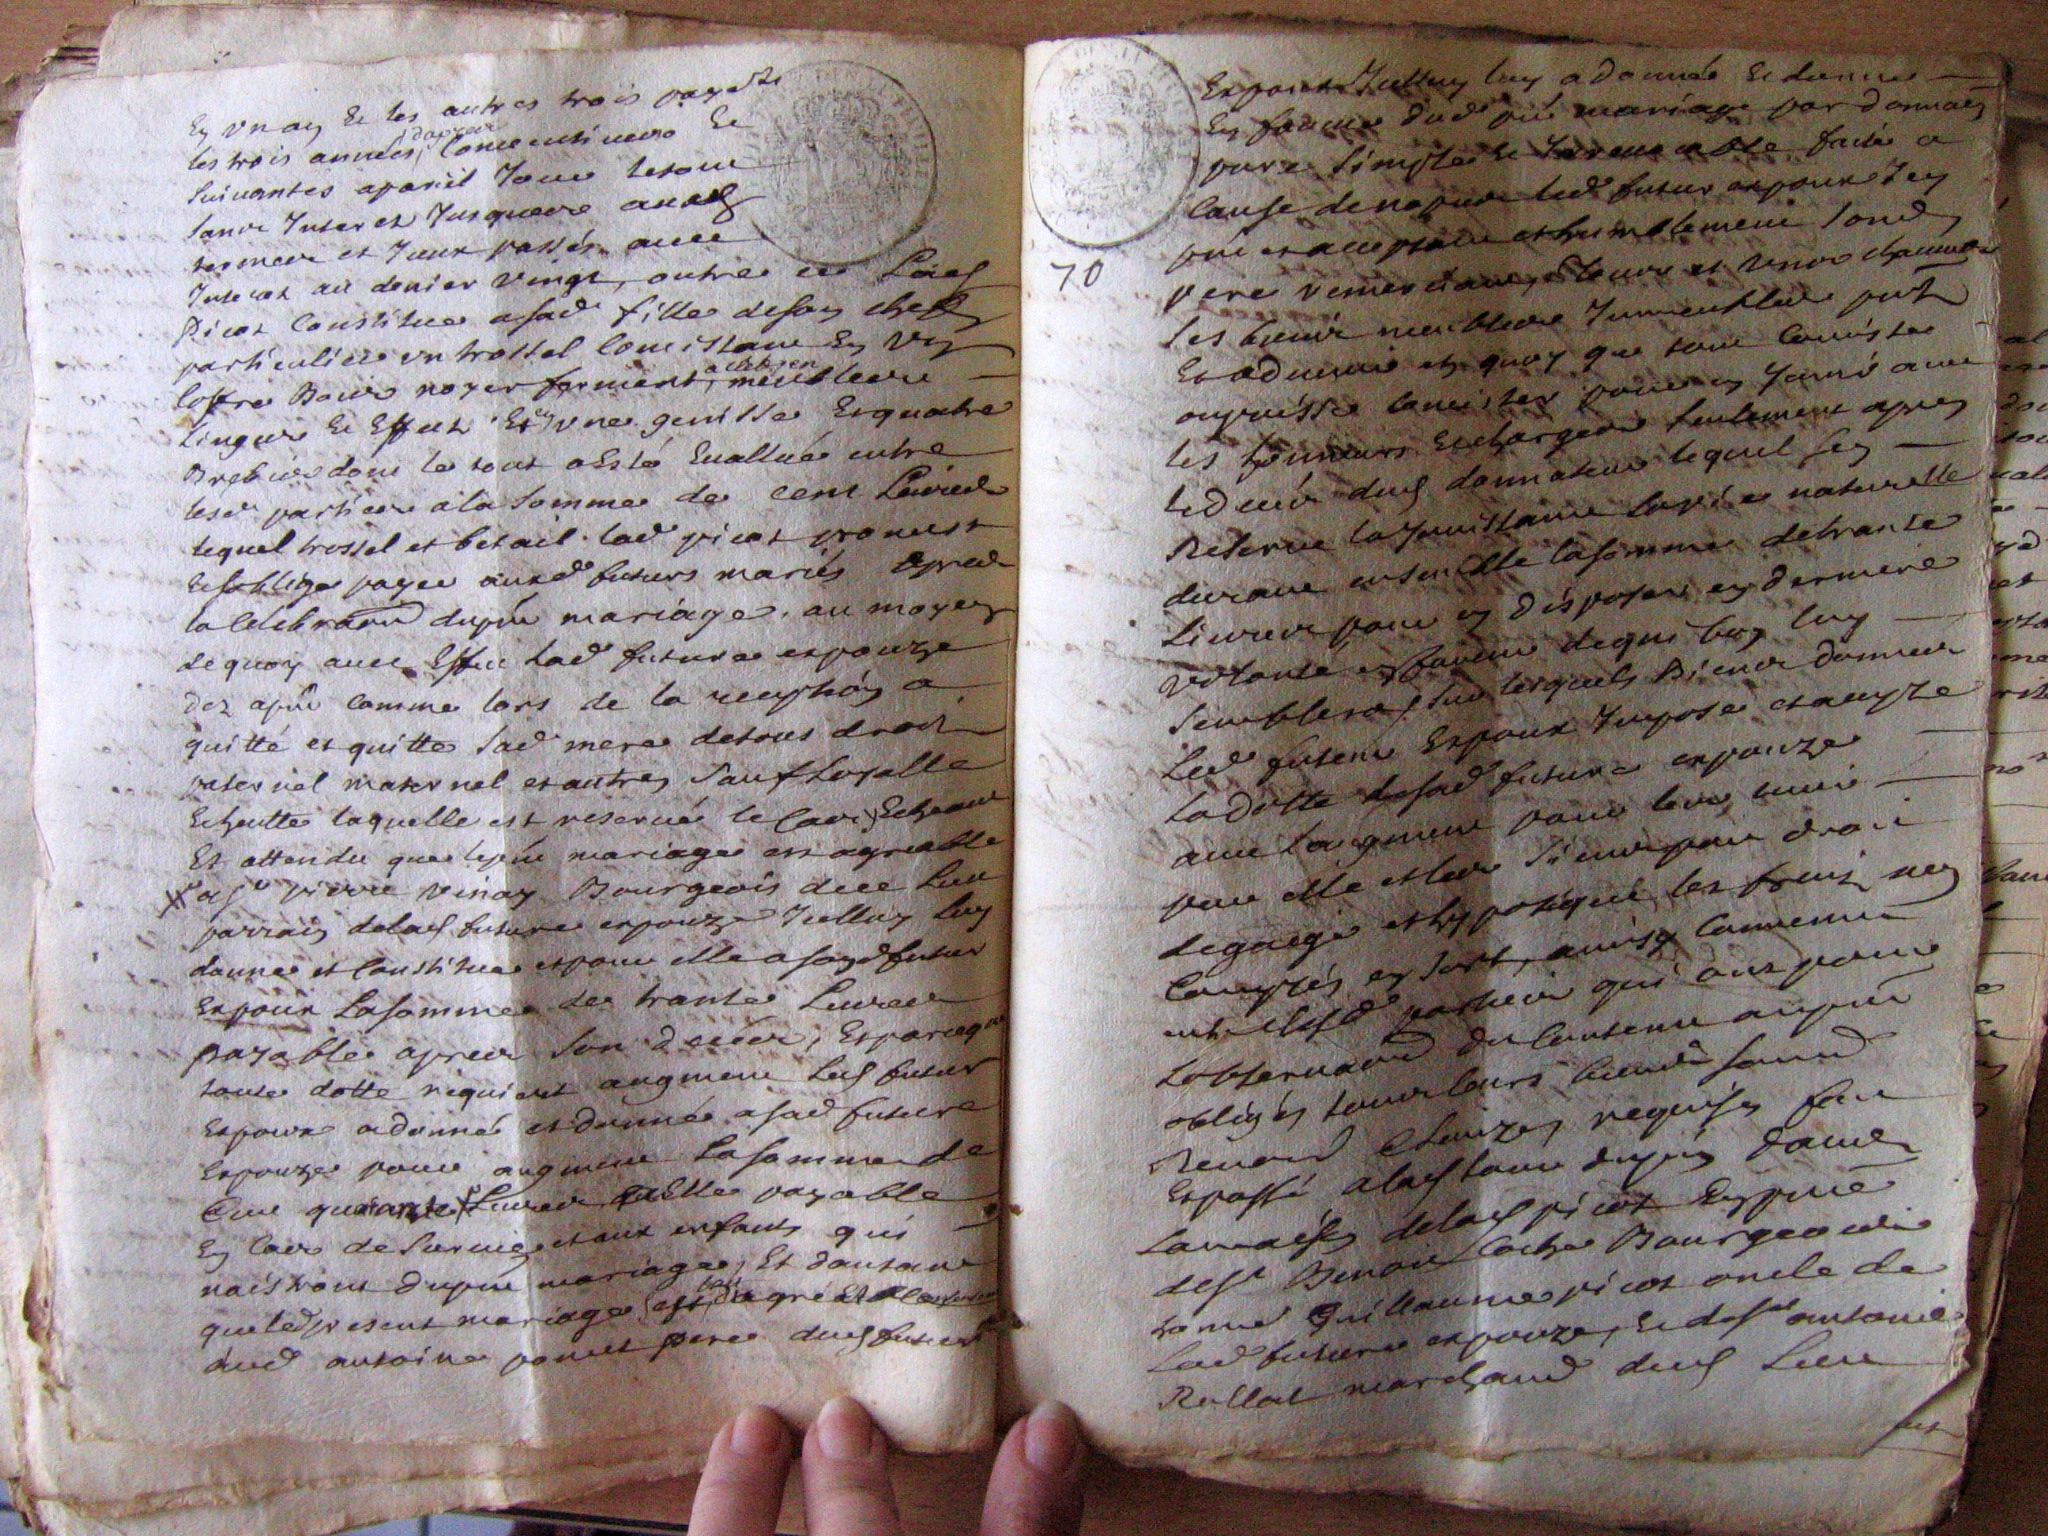 En un an Et les autres trois payes
les trois années dapres Consecutives Et
suivantes a pareil Jour le tout
sans Interet Jusqueux auxds
termes et Iceux passés avec
Interet au denier vingt, outre ce Lad
picot Constitue a sad fille de son chef
particulier un trossel Consistant En un
Coffre Bois noyer fermant a clef, meubles
Linges Et Effets Et une genisse Et quatre
Brebis dont le tout a Esté Evallué entre
lesd parties a la somme de cent Livres
lequel trossel et betail lad picot promet
Et soblige payer auxd futurs mariés apres
la Celebraon du pnt mariage. au moyen
de quoy avec Effet lad future espouze
dez apnt comme lors de la reception a
quitté et quitte sad mere de tous droits
paternel maternel et autres sauf Loyalle
Echeutte laquelle est reservée le Cas Echeant
Et attendu que le pnt mariage est agreable
a sr pierre vinay Bourgeois dece Lieu
parrain delad future espouze Icelluy luy
donne et Constitue et pour elle a sond futur
Espoux La somme de trante Livres
payable apres son deces, Et parceque
toute dotte requiert augment Led futur
Espoux a donné et donne a sad future
Espouze pour augment La somme de
Cent quarante Livres a Elle payable
En Cas de survie et aux enfants qui
naistront du pnt mariage, Et dautant
que led present mariage est du gré Et Consentement
dud antoine ponet pere dud futur
70
Espoux Icelluy luy a donné Et donne
En faveur dud pnt mariage par donnation
pure simple Et Irrevocable faite a
Cause de nopces led futur espoux Icy
pnt et acceptant et humblement sond
pere remerciant, Tous et uns chacuns
ses biens meubles Immeubles pnts
Et advenir en quoy que tout Consiste
ou puisse Consister pour en Jouir avec
les honneurs Et charges seulement apres
le deces dud donnateur lequel sen
Reserve la Jouissance sa vie naturelle
durant ensemble la somme de trante
Livres pour en disposer en derniere
volonté en faveur de qui bon luy
semblera, sur lesquels Biens donnes
Led futeur Espoux Impose et assize
La dotte de sad future espouze
avec Laugment pour leur servir
pour elle et les siens par droit
de gaige et hypoteque les fruits non
Comptés en sort, ainsy Convenu
entre lesd parties qui ont pour
Lobservaon du Contenu au pnt
obligés tous leurs biens soumis
Renoncé Clauzes requises fait
Et passé
La maison delad picot En pnce
de sr Benoit Bourgeois
Guillaume picot oncle de
Lad future espouze, Et de sr antoine
Rullat marchand dud Lieu